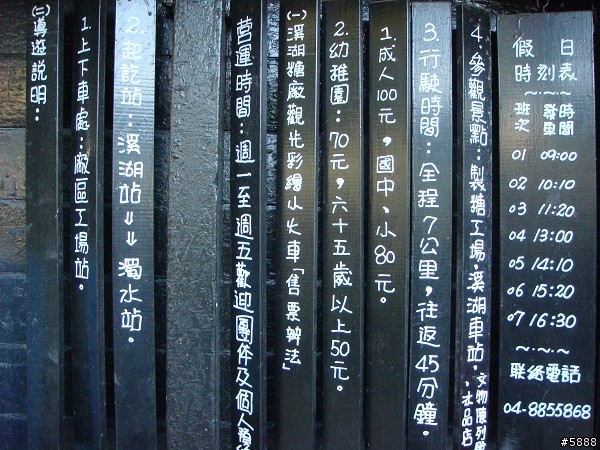 (二)導遊說明：
1.上下車處：廠區工場站。
2.起訖站：溪湖站⇓⇓濁水站。
營運時間：週一至週五歡迎團体及個人預
(一)溪湖糖廠觀光彩繪小火車「售票辦法」
2.幼稚園：70元，六十五歲以上50元。
1.成人100元，國中、小80元。
3.行駛時間：全程7公里，往返45分鐘。
4.參觀景點：製糖工場.溪湖車站.文物陳列館.冰品店
假日
時刻表
～.～.～
班次 發車時間
01 09:00
02 10:10
03 11:20
04 13:00
05 14:10
06 15:20
07 16:30
～.～.～
聯絡電話
04-8855868
#5888